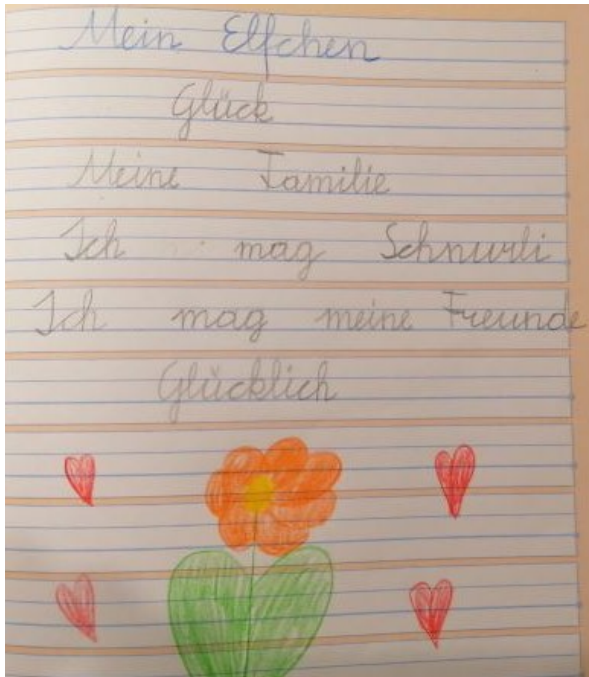 Mein Elfchen
Glück
Meine Familie
Ich mag Schnurli
Ich mag meine Freunde
Glücklich